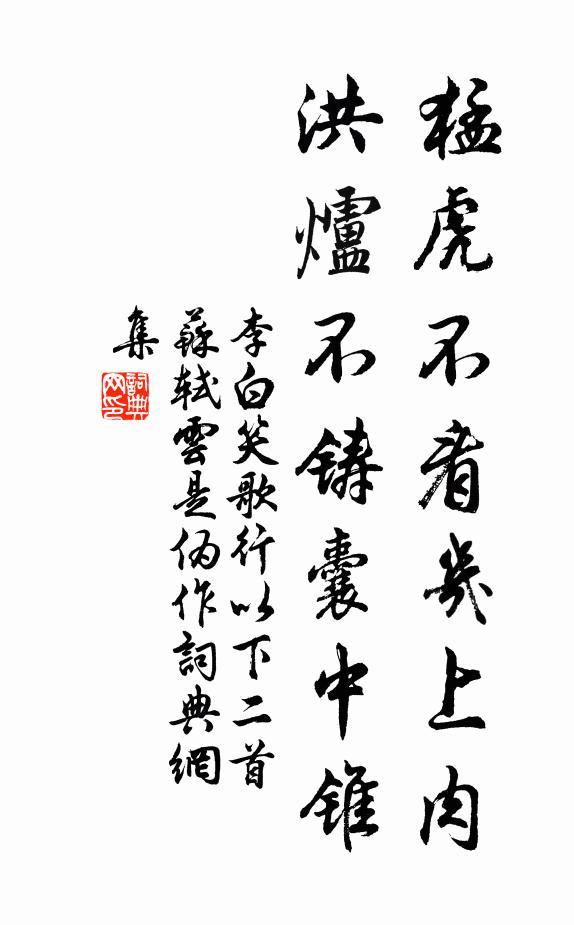 猛虎不看几上肉
洪爐不鑄囊中錐
李白笑歌行以下二首
蘇軾雲是偽作詞典網
集
詞典
网印